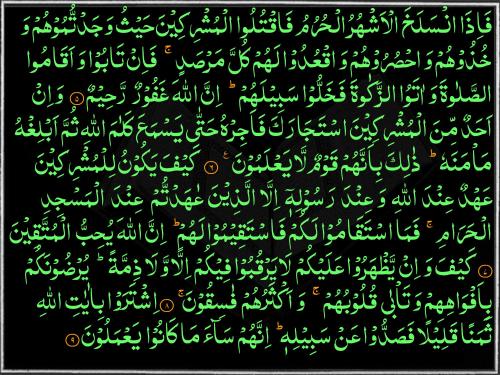 فَاِذَا انْسَلَخَ الْاَشْهُرُ الْحُرُمُ فَاقْتُلُوا الْمُشْرِكِيْنَ حَيْثُ وَجَدْتُّمُوْهُمْ وَ
خُذُوْهُمْ وَاحْصُرُوْهُمْ وَاقْعُدُوْا لَهُمْ كُلَّ مَرْصَدٍ ۚ فَاِنْ تَابُوْا وَاَقَامُوا
الصَّلٰوةَ وَاٰتَوُا الزَّكٰوةَ فَخَلُّوْا سَبِيْلَهُمْ ؕ اِنَّ اللّٰهَ غَفُوْرٌ رَّحِيْمٌ ۵ وَاِنْ
اَحَدٌ مِّنَ الْمُشْرِكِيْنَ اسْتَجَارَكَ فَاَجِرْهُ حَتّٰى يَسْمَعَ كَلٰمَ اللّٰهِ ثُمَّ اَبْلِغْهُ
مَاْمَنَهٗ ؕ ذٰلِكَ بِاَنَّهُمْ قَوْمٌ لَّا يَعْلَمُوْنَ ۶ كَيْفَ يَكُوْنُ لِلْمُشْرِكِيْنَ
عَهْدٌ عِنْدَ اللّٰهِ وَعِنْدَ رَسُوْلِهٖۤ اِلَّا الَّذِيْنَ عٰهَدْتُّمْ عِنْدَ الْمَسْجِدِ
الْحَرَامِ ۚ فَمَا اسْتَقَامُوْا لَكُمْ فَاسْتَقِيْمُوْا لَهُمْ ؕ اِنَّ اللّٰهَ يُحِبُّ الْمُتَّقِيْنَ
۷ كَيْفَ وَاِنْ يَّظْهَرُوْا عَلَيْكُمْ لَا يَرْقُبُوْا فِيْكُمْ اِلًّا وَّلَا ذِمَّةً ؕ يُرْضُوْنَكُمْ
بِاَفْوَاهِهِمْ وَتَاْبٰى قُلُوْبُهُمْ ۚ وَاَكْثَرُهُمْ فٰسِقُوْنَ ۚ ۸ اِشْتَرَوْا بِاٰيٰتِ اللّٰهِ
ثَمَنًا قَلِيْلًا فَصَدُّوْا عَنْ سَبِيْلِهٖ ؕ اِنَّهُمْ سَآءَ مَا كَانُوْا يَعْمَلُوْنَ ۹